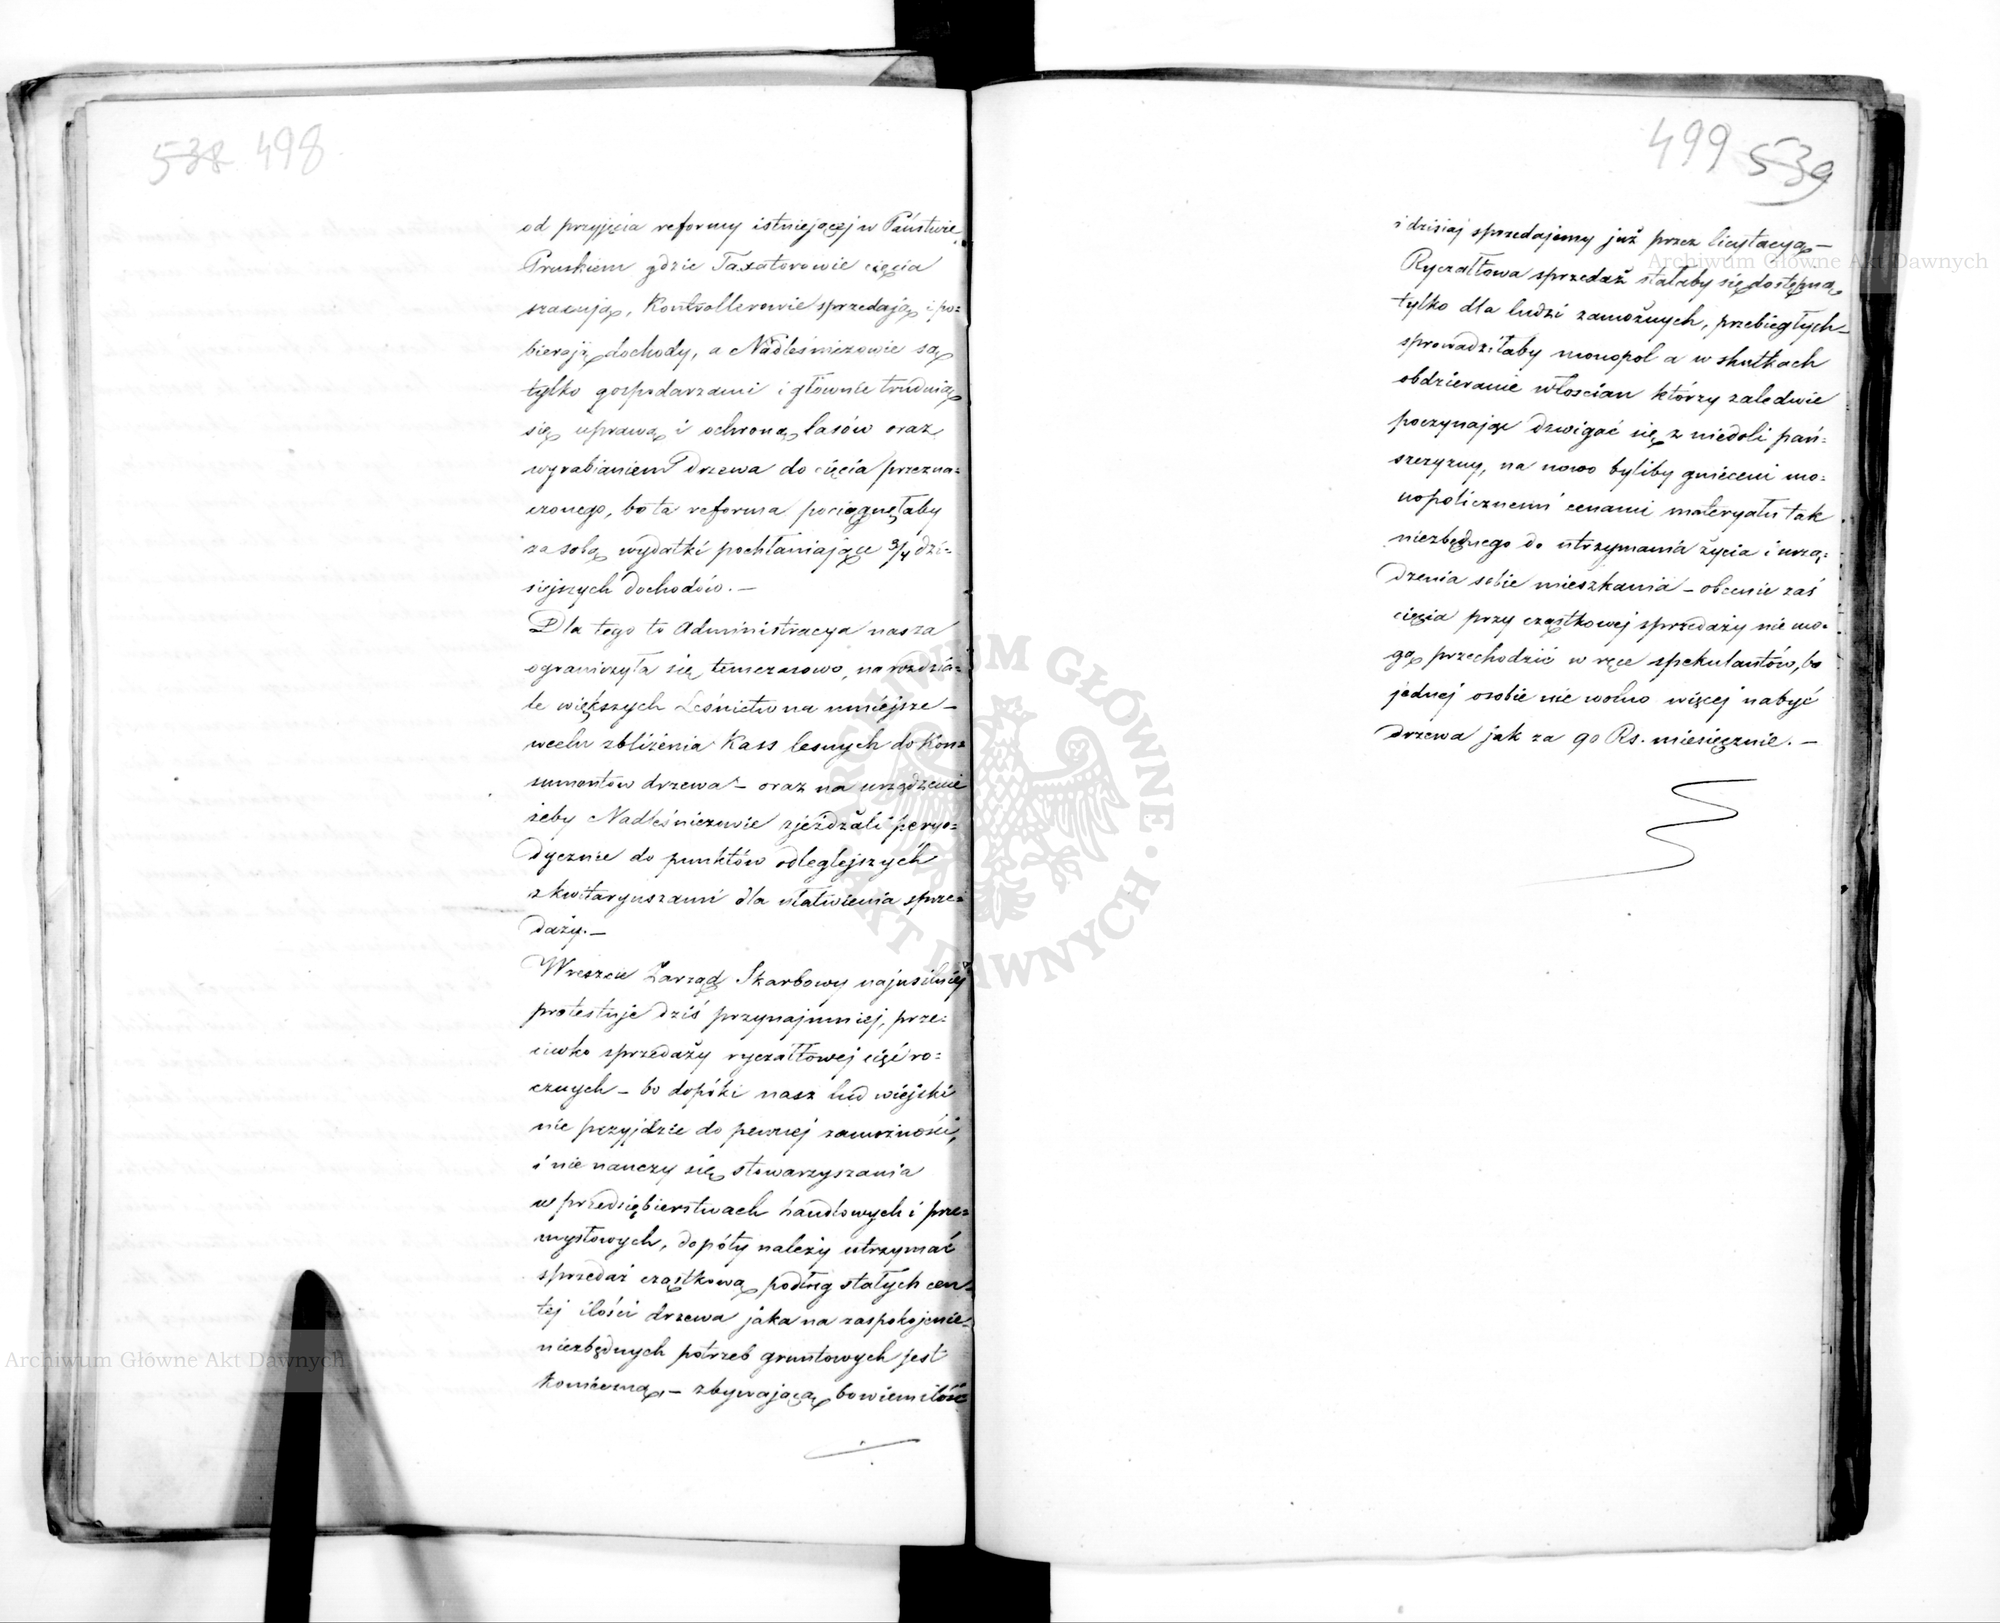 538 498
od przyjęcia reformy istniejącej w Państwie
Pruskiem gdzie Taxatorowie cięcia
szacują, Kontrollerowie sprzedają i po=
bierają dochody, a Nadleśniczowie są
tylko gospodarzami i głównie trudnią
się uprawą i ochroną lasów oraz
wyrabianiem drzewa do cięcia przezna=
czonego, bo ta reforma pociągnęłaby
za sobą wydatki pochłaniające 3/4 dzi=
siejszych dochodów. —
Dla tego to Administracya nasza
ograniczyła się temczasowo, na rozdzia=
le większych Leśnictw na mniejsze —
w celu zbliżenia Kass lesnych do Kon=
sumentów drzewa — oraz na urządzenie
żeby Nadleśniczowie zjeżdżali peryo=
dycznie do punktów odleglejszych
z kwitaryuszami dla ułatwienia sprze=
daży. —
Wreszcie Zarząd Skarbowy najusilniej
protestuje dziś przynajmniej, prze=
ciwko sprzedaży ryczałtowej cięć ro=
cznych — bo dopóki nasz lud wiejski
nie przyjdzie do pewnej zamożności,
i nie nauczy się stowarzyszania
w przedsiębierstwach handlowych i prze=
mysłowych, dopóty należy utrzymać
sprzedaż cząstkową podług stałych cen
tej ilości drzewa jaka na zaspokojenie
niezbędnych potrzeb gruntowych jest
konieczną, — zbywającą bowiem ilość
499 539
i dzisiaj sprzedajemy już przez licytacyą —
Ryczałtowa sprzedaż stałaby się dostępną
tylko dla ludzi zamożnych, przebiegłych —
sprowadziłaby monopol a w skutkach
obdzieranie włoscian którzy zaledwie
poczynając dzwigać się z niedoli pań=
szczyzny, na nowo byliby gnieceni mo=
nopolicznemi cenami materyału tak
niezbędnego do utrzymania życia i urzą=
dzenia sobie mieszkania — obecnie zaś
cięcia przy cząstkowej sprzedaży nie mo=
gą przechodzić w ręce spekulantów, bo
jednej osobie nie wolno więcej nabyć
drzewa jak za 90 Rs. miesięcznie. —
Archiwum Główne Akt Dawnych
ARCHIWUM GŁÓWNE AKT DAWNYCH
Archiwum Główne Akt Dawnych